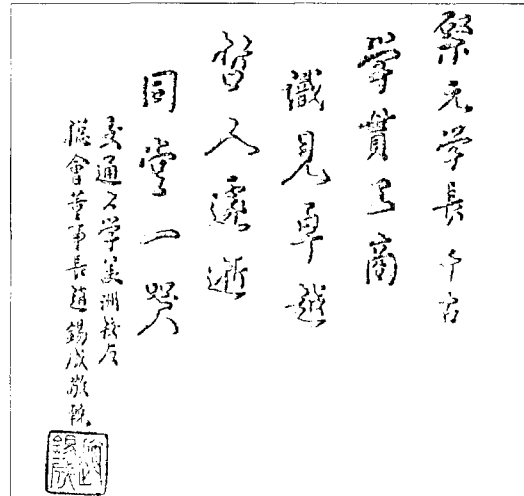 元学長千古
學貫工商
識見卓越
哲人遽逝
同堂一哭
交通大学美洲校友
聯會董事長趙錫成敬輓